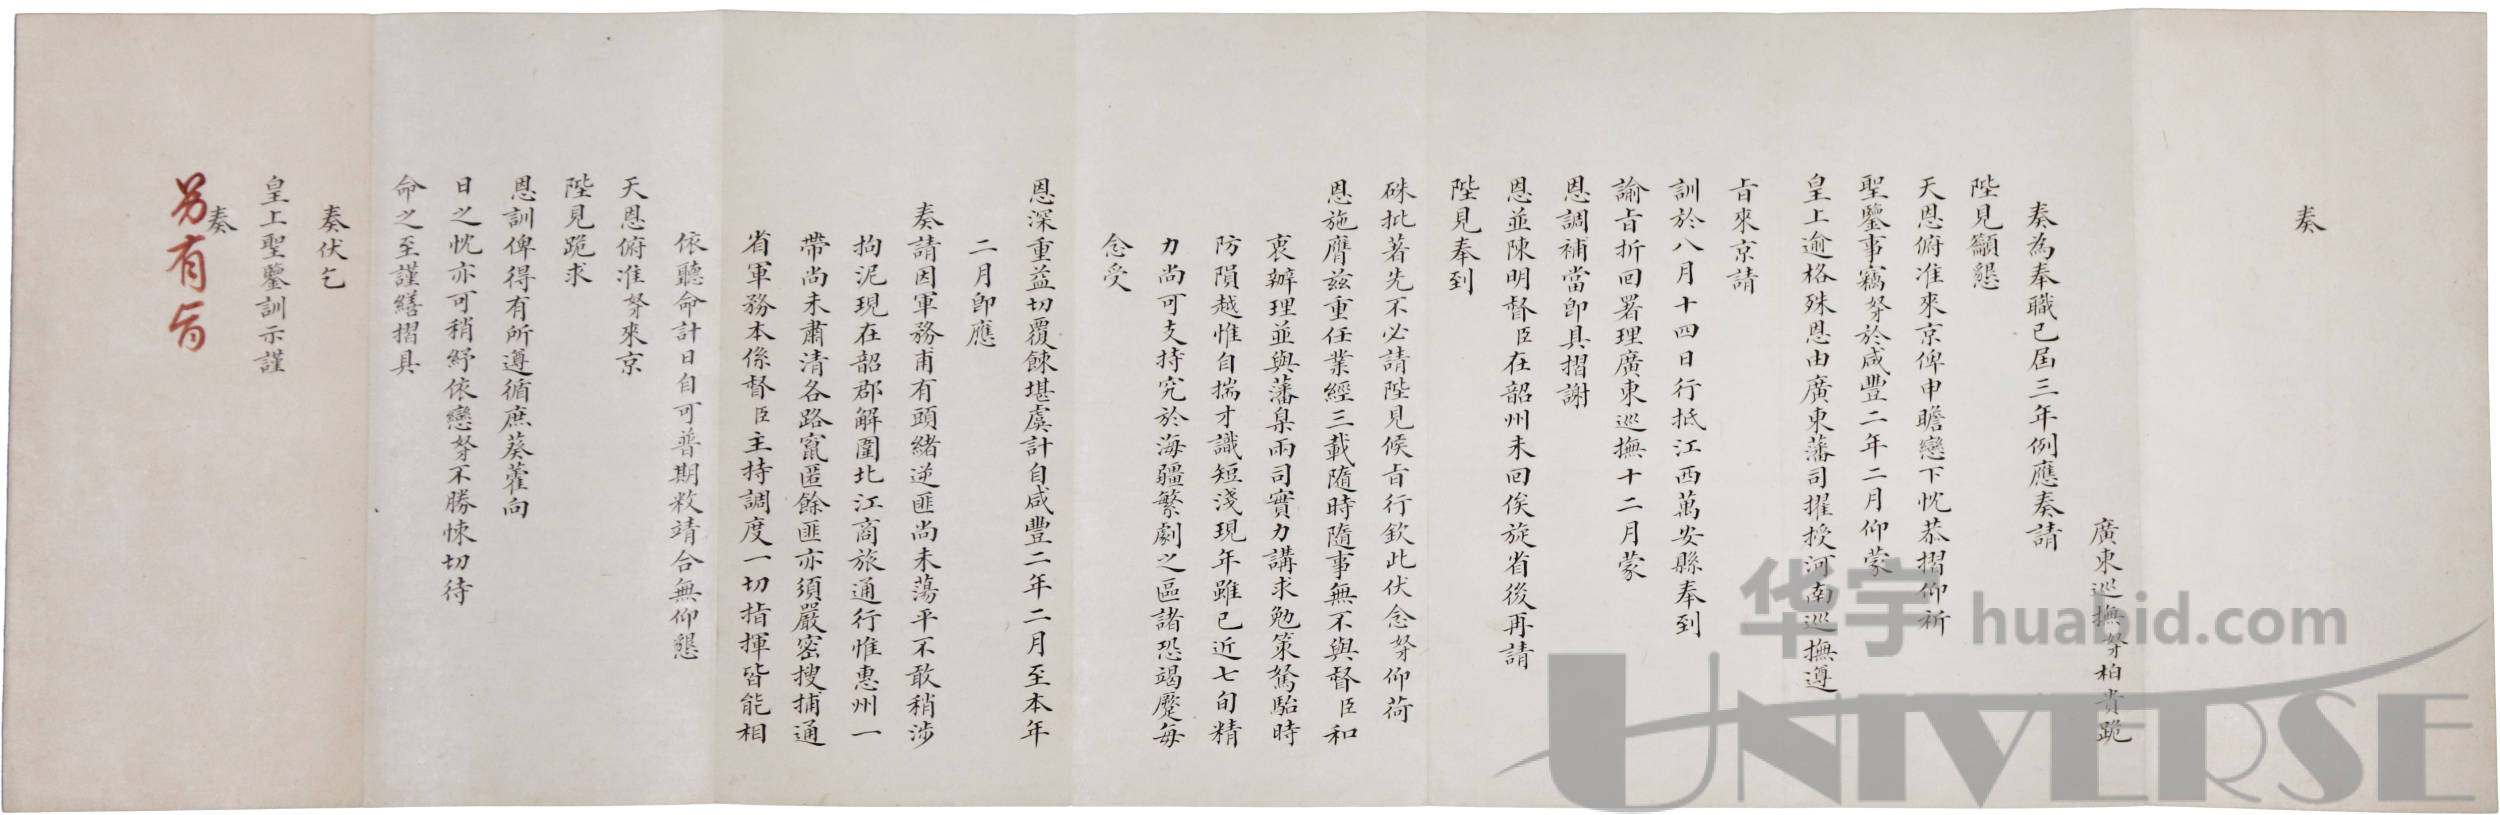 奏
廣東巡撫奴才柏貴跪
奏為奉職已屆三年例應奏請
陛見籲懇
天恩俯准來京俾申瞻戀下忱恭摺仰祈
聖鑒事竊奴才於咸豐二年二月仰蒙
皇上逾格殊恩由廣東藩司擢授河南巡撫遵
旨來京請
訓於八月十四日行抵江西萬安縣奉到
諭旨折回署理廣東巡撫十二月蒙
恩調補當即具摺謝
恩並陳明督臣在韶州未回俟旋省後再請
陛見奉到
硃批著先不必請陛見候旨行欽此伏念奴才仰荷
恩施膺茲重任業經三載隨時隨事無不與督臣和
衷辦理並與藩臬兩司實力講求勉策駑駘時
防隕越惟自揣才識短淺現年雖已近七旬精
力尚可支持究於海疆繁劇之區諸恐竭蹷每
念受
恩深重益切覆餗堪虞計自咸豐二年二月至本年
二月即應
奏請因軍務甫有頭緒逆匪尚未蕩平不敢稍涉
拘泥現在韶郡解圍北江商旅通行惟惠州一
帶尚未肅清各路竄匿餘匪亦須嚴密搜捕通
省軍務本係督臣主持調度一切指揮皆能相
依聽命計日自可普期敉靖合無仰懇
天恩俯准奴才來京
陛見跪求
恩訓俾得有所遵循庶葵藿向
日之忱亦可稍紓依戀奴才不勝悚切待
命之至謹繕摺具
奏伏乞
皇上聖鑒訓示謹
奏
另有旨
华宇 huabid.com
UNIVERSE